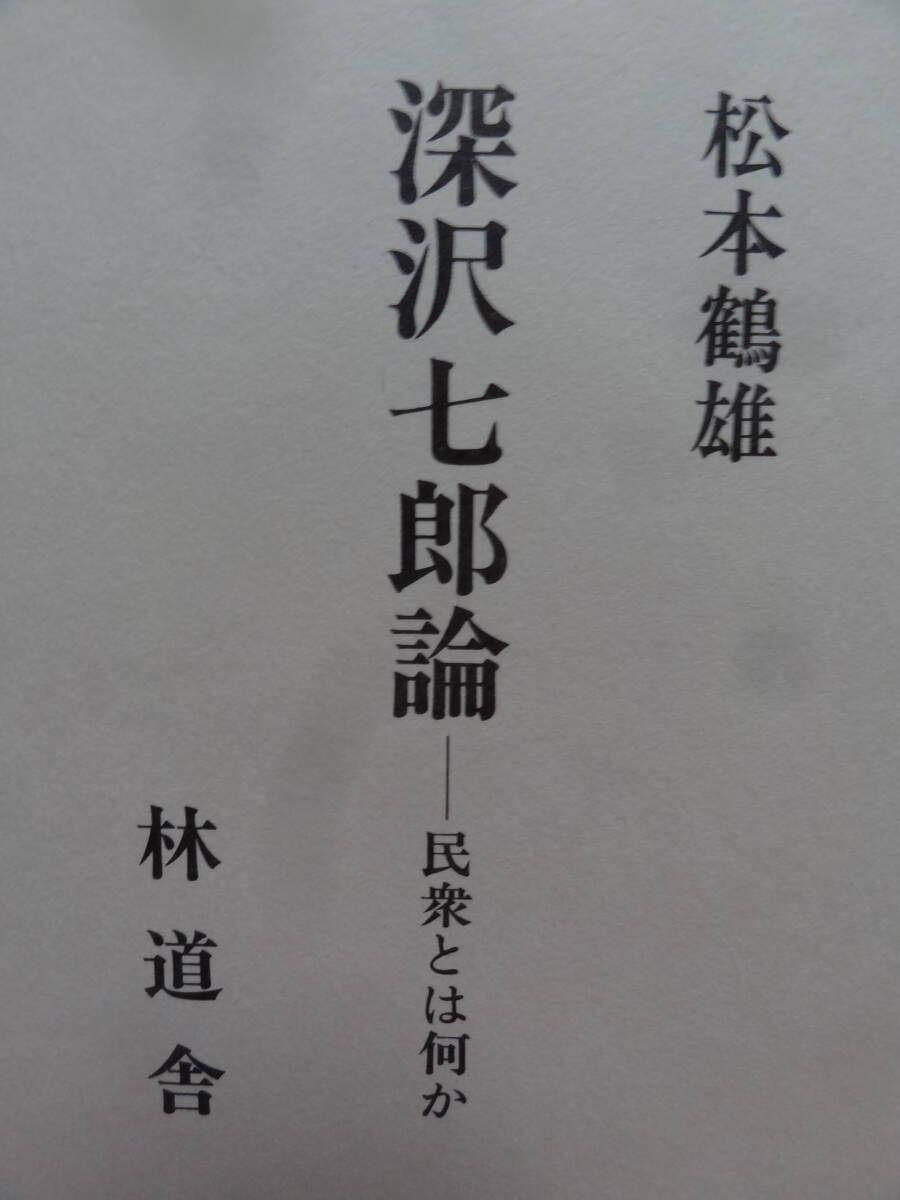 松本鶴雄
深沢七郎論——民衆とは何か
林道舎